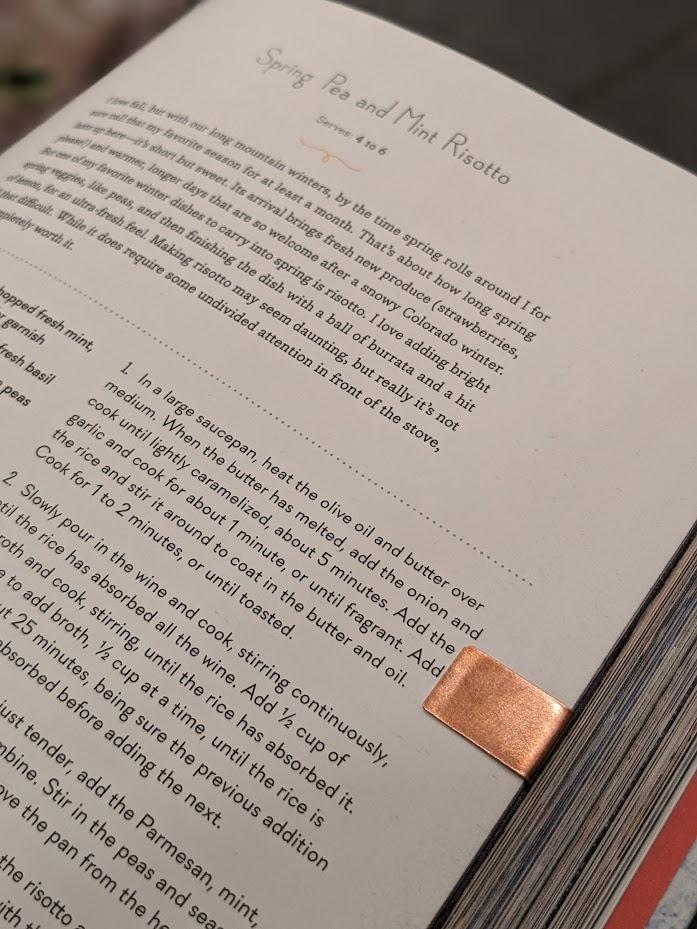 Spring Pea and Mint Risotto
Serves: 4 to 6
I love fall, but with our long mountain winters, by the time spring rolls around I for
sure call that my favorite season for at least a month. That's about how long spring
lasts up here—it's short but sweet. Its arrival brings fresh new produce (strawberries,
please!) and warmer, longer days that are so welcome after a snowy Colorado winter.
But one of my favorite winter dishes to carry into spring is risotto. I love adding bright
spring veggies, like peas, and then finishing the dish with a ball of burrata and a hit
of lemon, for an ultra-fresh feel. Making risotto may seem daunting, but really it's not
that difficult. While it does require some undivided attention in front of the stove,
worth it.
hopped fresh mint,
garnish
fresh basil
peas
1. In a large saucepan, heat the olive oil and butter over
medium. When the butter has melted, add the onion and
cook until lightly caramelized, about 5 minutes. Add the
garlic and cook for about 1 minute, or until fragrant. Add
the rice and stir it around to coat in the butter and oil.
Cook for 1 to 2 minutes, or until toasted.
2. Slowly pour in the wine and cook, stirring continuously,
til the rice has absorbed all the wine. Add ½ cup of
roth and cook, stirring, until the rice has absorbed it.
e to add broth, ½ cup at a time, until the rice is
ut 25 minutes, being sure the previous addition
absorbed before adding the next.
just tender, add the Parmesan, mint,
mbine. Stir in the peas and seas
ove the pan from the he
the risotto a
with th